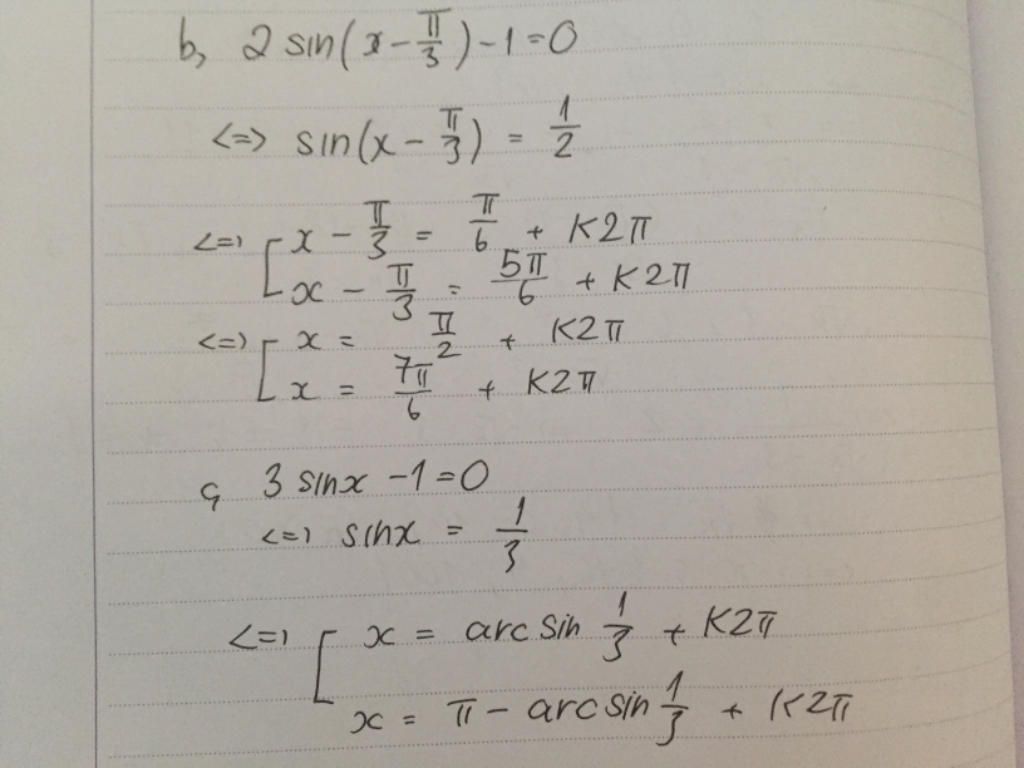 b, 2 sin(x - π/3) - 1 = 0
<=> sin(x - π/3) = 1/2
<=> [ x - π/3 = π/6 + K2π
x - π/3 = 5π/6 + K2π
<=> [ x = π/2 + K2π
x = 7π/6 + K2π
c, 3 sinx - 1 = 0
<=> sinx = 1/3
<=> [ x = arc sin 1/3 + K2π
x = π - arc sin 1/3 + K2π